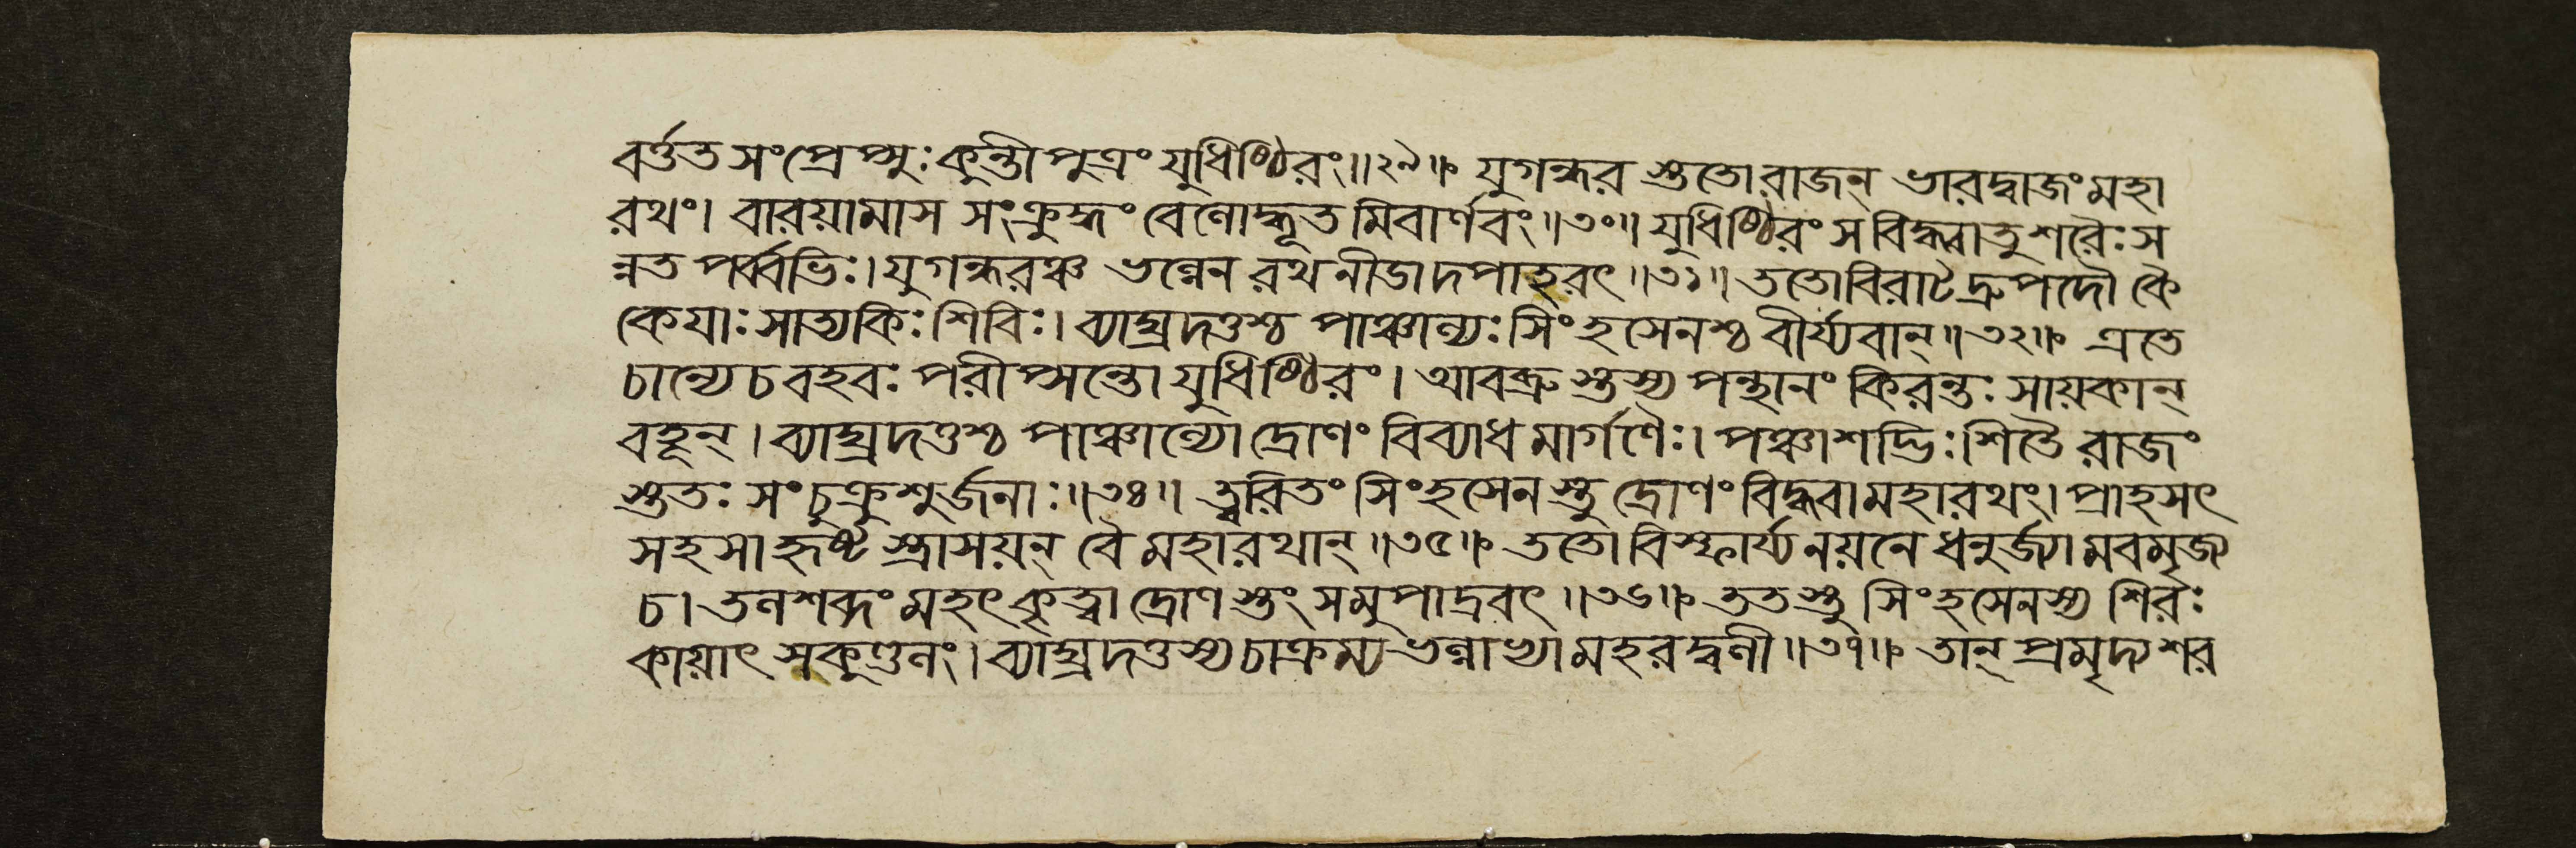 বর্ত্তত সংপ্রেপ্সুঃ কুন্তীপুত্রং যুধিষ্ঠিরং॥২৯॥ যুগন্ধর স্তুতো রাজন্ ভারদ্বাজং মহা
রথং। বারয়ামাস সংক্রুদ্ধং বেলোদ্ধূত মিবার্ণবং॥৩০॥ যুধিষ্ঠিরং স বিদ্ধ্বাতু শরৈঃ স
ন্নত পর্ব্বভিঃ। যুগন্ধরঞ্চ ভল্লেন রথনীডাদপাহরৎ॥৩১॥ ততো বিরাটদ্রুপদৌ কৈ
কেযাঃ সাত্যকিঃ শিবিঃ। ব্যাঘ্রদত্তশ্চ পাঞ্চাল্যঃ সিংহসেনশ্চ বীর্য্যবান্॥৩২॥ এতে
চান্যে চ বহবঃ পরীপ্সন্তো যুধিষ্ঠিরং। আবব্রু স্তস্য পন্থানং কিরন্তঃ সায়কান্
বহূন্। ব্যাঘ্রদত্তশ্চ পাঞ্চাল্যো দ্রোণং বিব্যাধ মার্গণৈঃ। পঞ্চাশদ্ভিঃ শিতৈ রাজং
স্তুতঃ সংচুক্রুশুর্জনাঃ॥৩৪॥ ত্ত্বরিতং সিংহসেন স্তু দ্রোণং বিদ্ধ্বা মহারথং। প্রাহসৎ
সহসা হৃষ্ট স্ত্রাসয়ন্ বৈ মহারথান্॥৩৫॥ ততো বিস্ফার্য্য নয়নে ধনুর্জ্যা মবমৃজ্য
চ। তলশব্দং মহৎ কৃত্বা দ্রোণ স্তং সমুপাদ্রবৎ॥৩৬॥ ততস্তু সিংহসেনস্য শিরঃ
কায়াৎ সকুণ্ডলং। ব্যাঘ্রদত্তস্য চাক্রম্য ভল্লাভ্যা মহরদ্বলী॥৩৭॥ তান্ প্রমৃদ্য শর